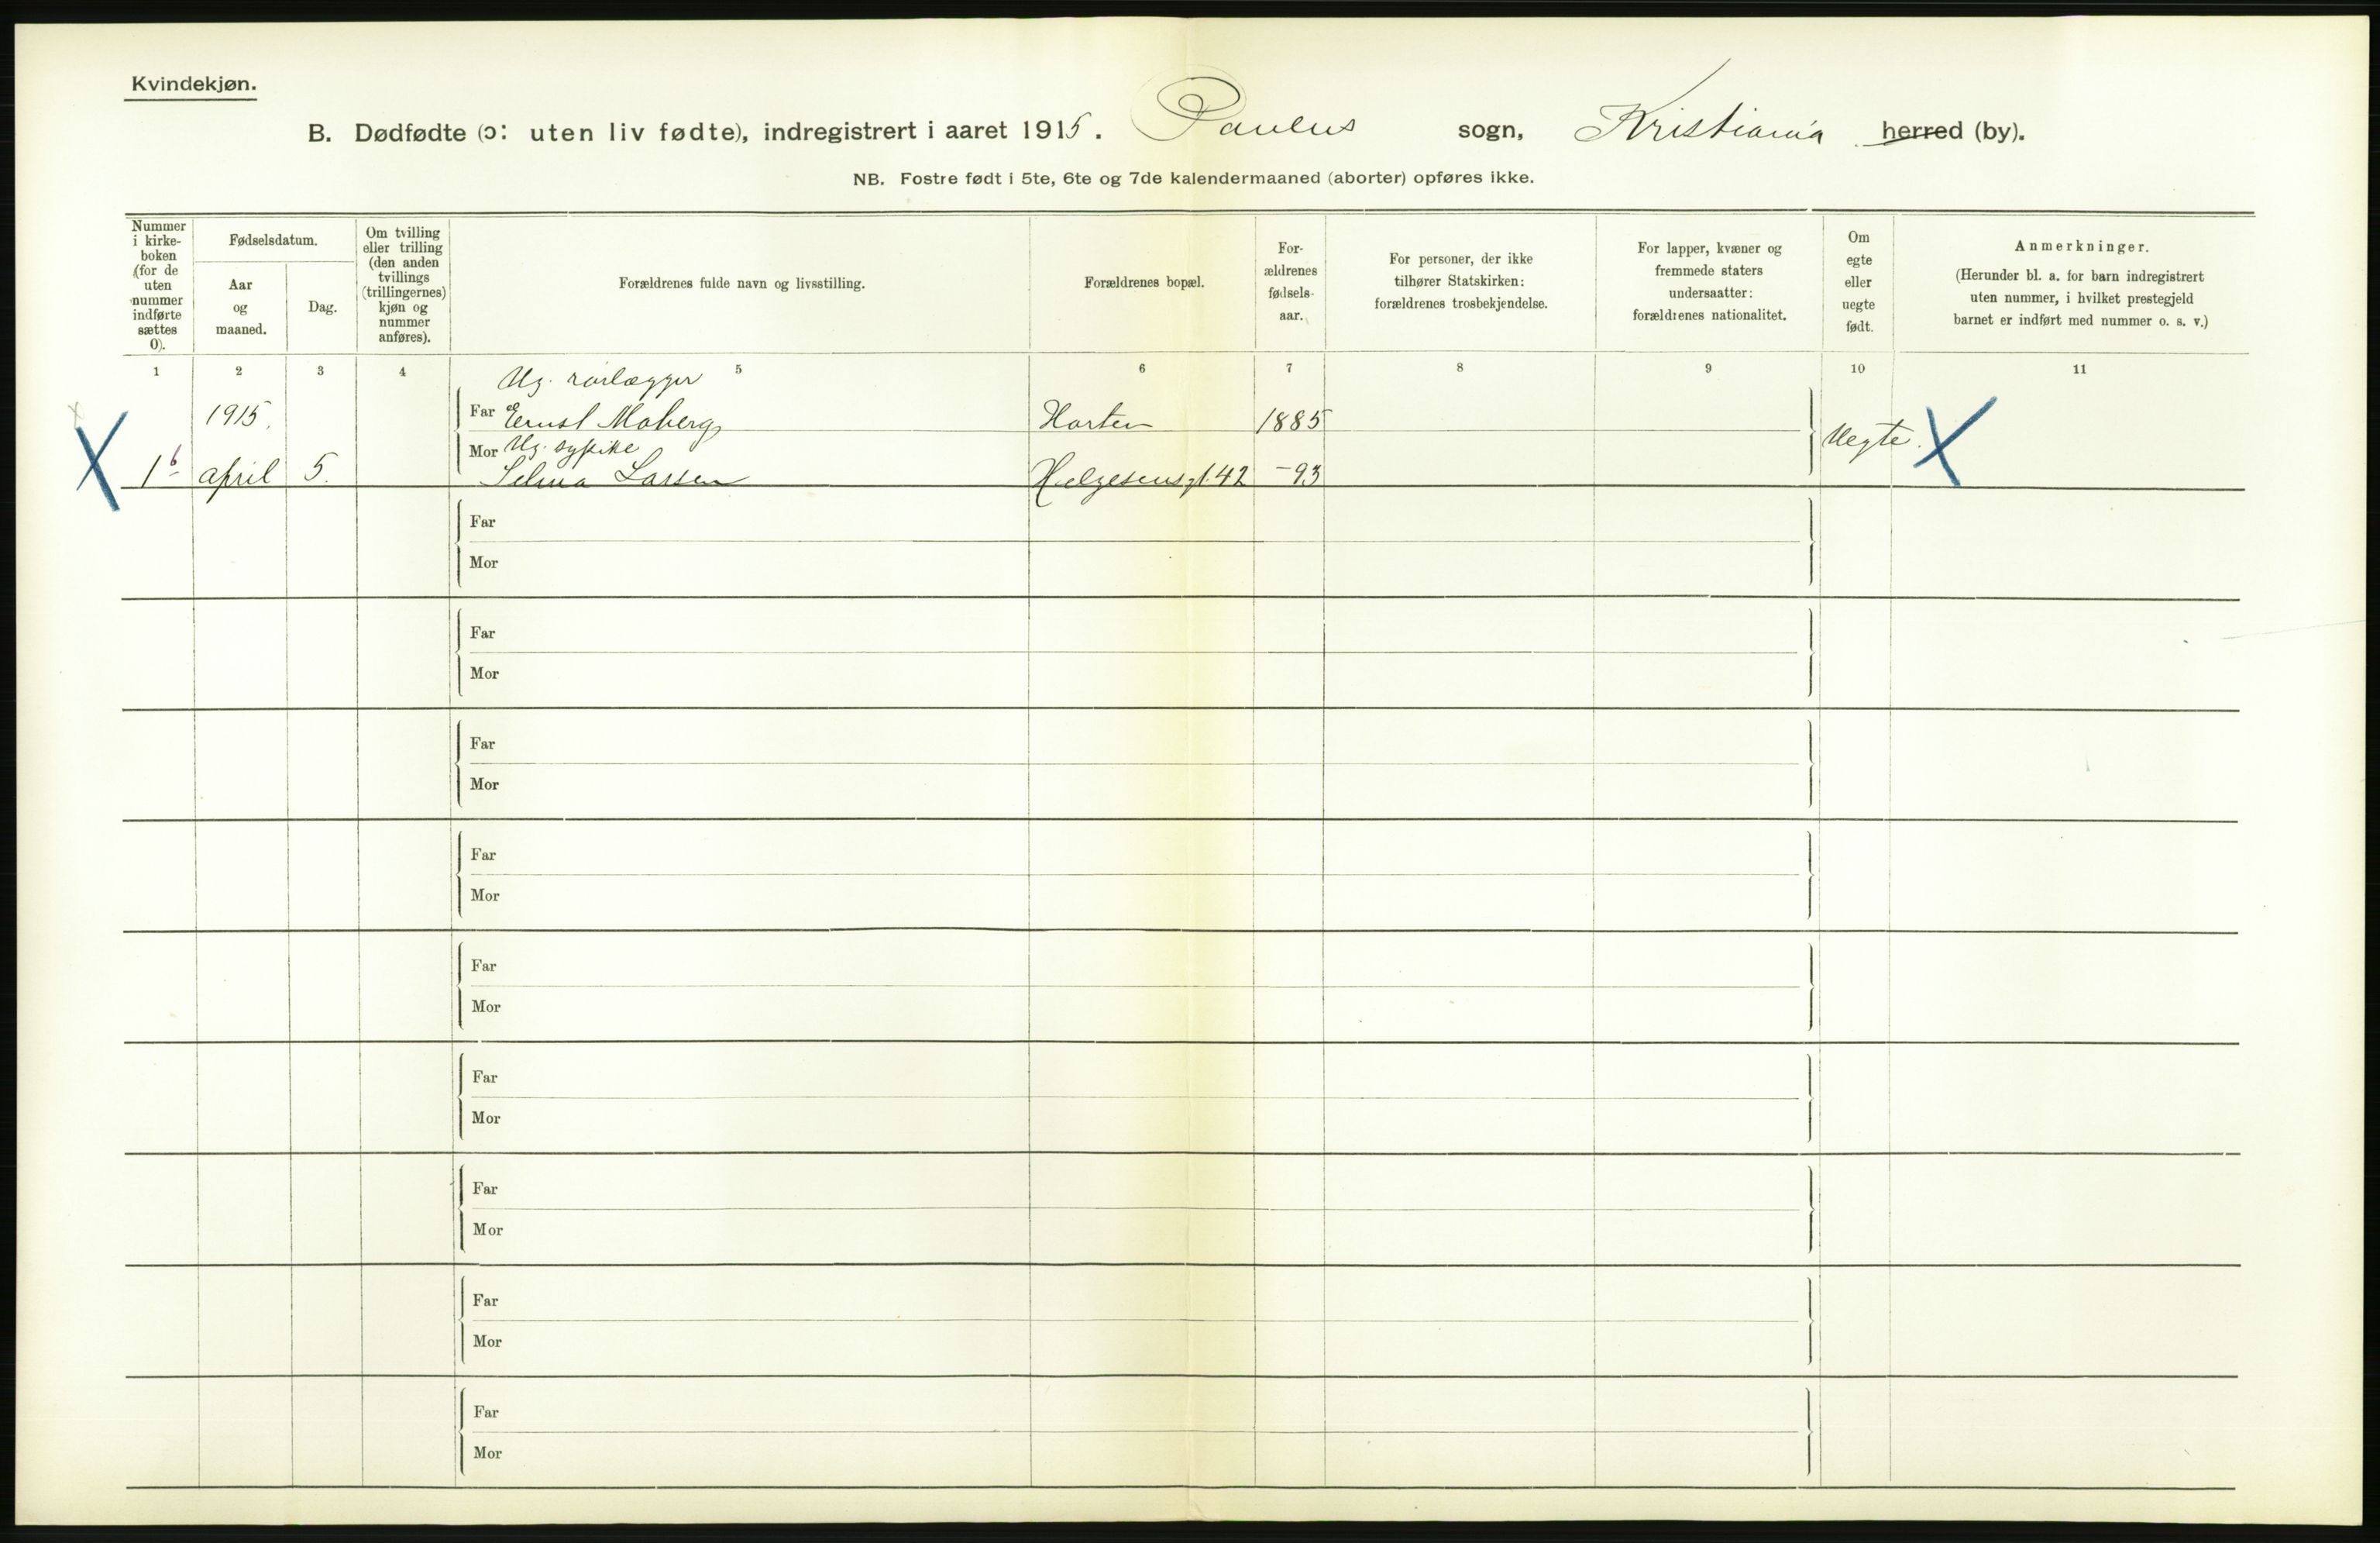 Kvindekjøn.
B. Dødfødte (ɔ: uten liv fødte), indregistrert i aaret 1915. Paulus sogn, Kristiania herred (by).
NB. Fostre født i 5te, 6te og 7de kalendermaaned (aborter) opføres ikke.
Nummer
i kirke-
boken
(for de
uten
nummer
indførte
sættes
0).
Fødselsdatum.
Aar
og
maaned.
Dag.
Om tvilling
eller trilling
(den anden
tvillings
(trillingernes)
kjøn og
nummer
anføres).
Forældrenes fulde navn og livsstilling.
Forældrenes bopæl.
For-
ældrenes
fødsels-
aar.
For personer, der ikke
tilhører Statskirken:
forældrenes trosbekjendelse.
For lapper, kvæner og
fremmede staters
undersaatter:
forældrenes nationalitet.
Om
egte
eller
uegte
født.
Anmerkninger.
(Herunder bl. a. for barn indregistrert
uten nummer, i hvilket prestegjeld
barnet er indført med nummer o. s. v.)
1 2 3 4 5 6 7 8 9 10 11
Ug. rørlægger
1915. Far Ernst Moberg Horten 1885
Mor Ug. sypike Uegte.
1 b april 5. Selma Larsen Helgesensgt. 42 -93
Far
Mor
Far
Mor
Far
Mor
Far
Mor
Far
Mor
Far
Mor
Far
Mor
Far
Mor
Far
Mor